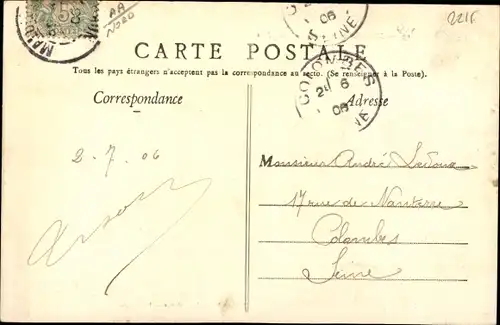 5c
AA
NORD
2216
COLOMBES
06
SEINE
CARTE POSTALE
Tous les pays étrangers n'acceptent pas la correspondance au recto. (Se renseigner à la Poste).
COLOMBES
6
06
Correspondance
Adresse
2-7.06
Monsieur André Ledoux
17 rue de Nanterre
Colombes
Seine